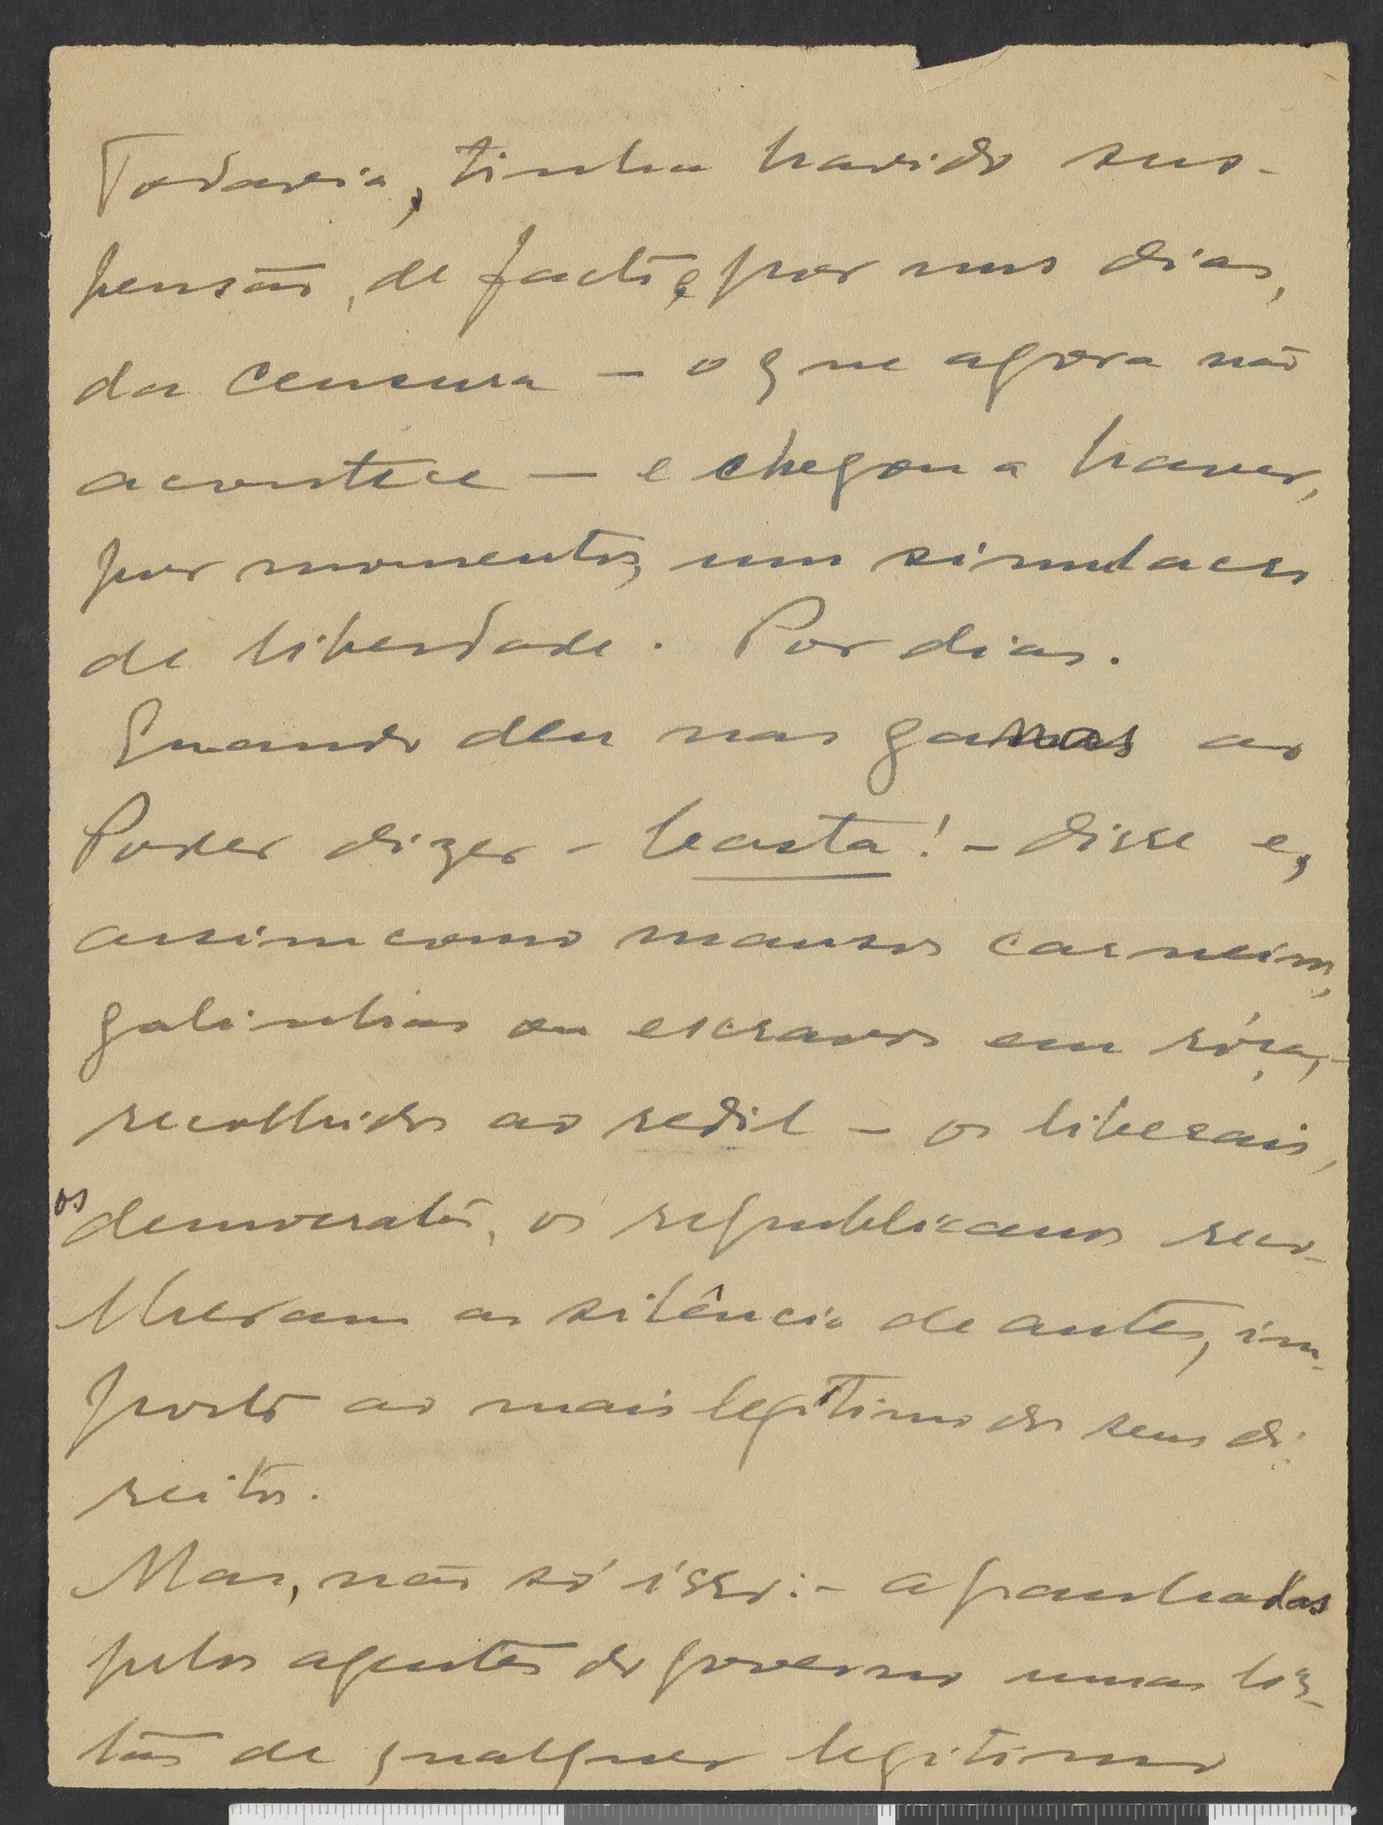 Todavia, tinha havido sus-
pensão, de facto, e por uns dias,
da censura – o que agora não
acontece – e chegou a haver,
por momentos, um simulacro
de liberdade. Por dias.
Quando deu nas ganas ao
Poder dizer – basta! – disse e,
assim como mansos carneiros,
galinhas ou escravos em róça, –
recolhidos ao redil – os liberais,
os democratas, os republicanos reco-
lheram ao silêncio de antes, im-
posto ao mais legítimo dos seus di-
reitos.
Mas, não só isso: – apanhadas
pelos agentes do governo umas lis-
tas de qualquer legitimo